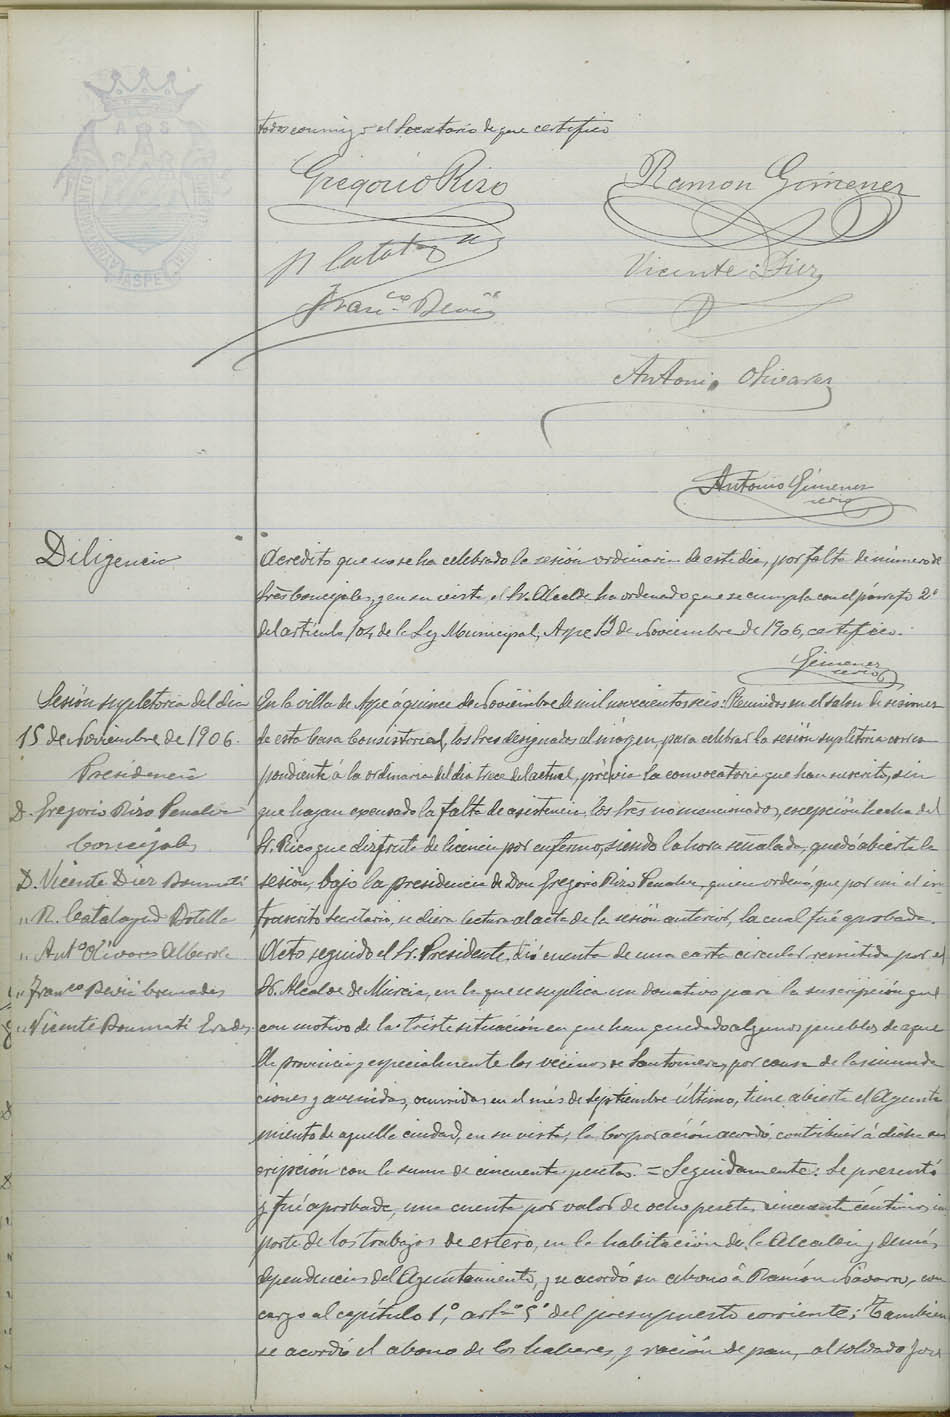 todos conmigo el Secretario de que certifico
Gregorio Rizo
Ramon Gimenez
R Calatayud
Vicente Diez
Franco Beviá
Antonio Olivares
Antonio Gimenez
Srio
Diligencia
Acredito que no se ha celebrado la sesión ordinaria de este dia, por falta de número de
Sres Concejales, y en su vista, el Sr. Alcalde ha ordenado que se cumpla con el párrafo 2º
del artículo 104 de la Ley Municipal, Aspe 13 de Noviembre de 1906, certifico.
Gimenez
Srio
Sesión supletoria del dia
15 de Noviembre de 1906.
Presidencia
D. Gregorio Rizo Penalva
Concejales
D. Vicente Diez Boumatí
" R. Calatayud Botella
" Antº Olivares Alberola
" Franco Beviá Cremades
" Vicente Boumatí
En la villa de Aspe á quince de Noviembre de mil novecientos seis: Reunidos en el salon de sesiones
de esta Casa Consistorial, los Sres designados al márgen, para celebrar la sesión supletoria corres
pondiente á la ordinaria del dia trece del actual, prévia la convocatoria que han suscrito, sin
que hayan excusado la falta de asistencia los Sres no mencionados, excepción hecha del
Sr. Rico que disfruta de licencia por enfermo, siendo la hora señalada, quedó abierta la
sesión, bajo la presidencia de Don Gregorio Rizo Penalva, quien ordenó, que por mi el in
frascrito Secretario, se diera lectura al acta de la sesión anterior, la cual fué aprobada.
Acto seguido el Sr. Presidente, dió cuenta de una carta circular remitida por el
Sr. Alcalde de Murcia, en la que se suplica un donativo para la suscripción que
con motivo de la triste situación en que han quedado algunos pueblos de aque
lla provincia y especialmente los vecinos de Santomera, por causa de las inunda
ciones y avenidas, ocurridas en el més de Septiembre último, tiene abierta el Ayunta
miento de aquella ciudad, en su vista, la Corporación acordó, contribuir á dicha sus
cripción con la suma de cincuenta pesetas. = Seguidamente: Se presentó
y fué aprobada, una cuenta por valor de ocho pesetas cincuenta céntimos im
porte de los trabajos de estero, en la habitación de la Alcaldia y demás
dependencias del Ayuntamiento, y se acordó su abono á Ramón Navarro, con
cargo al capítulo 1º, artº 5º del presupuesto corriente; Tambien
se acordó el abono de los haberes, y ración de pan, al soldado José